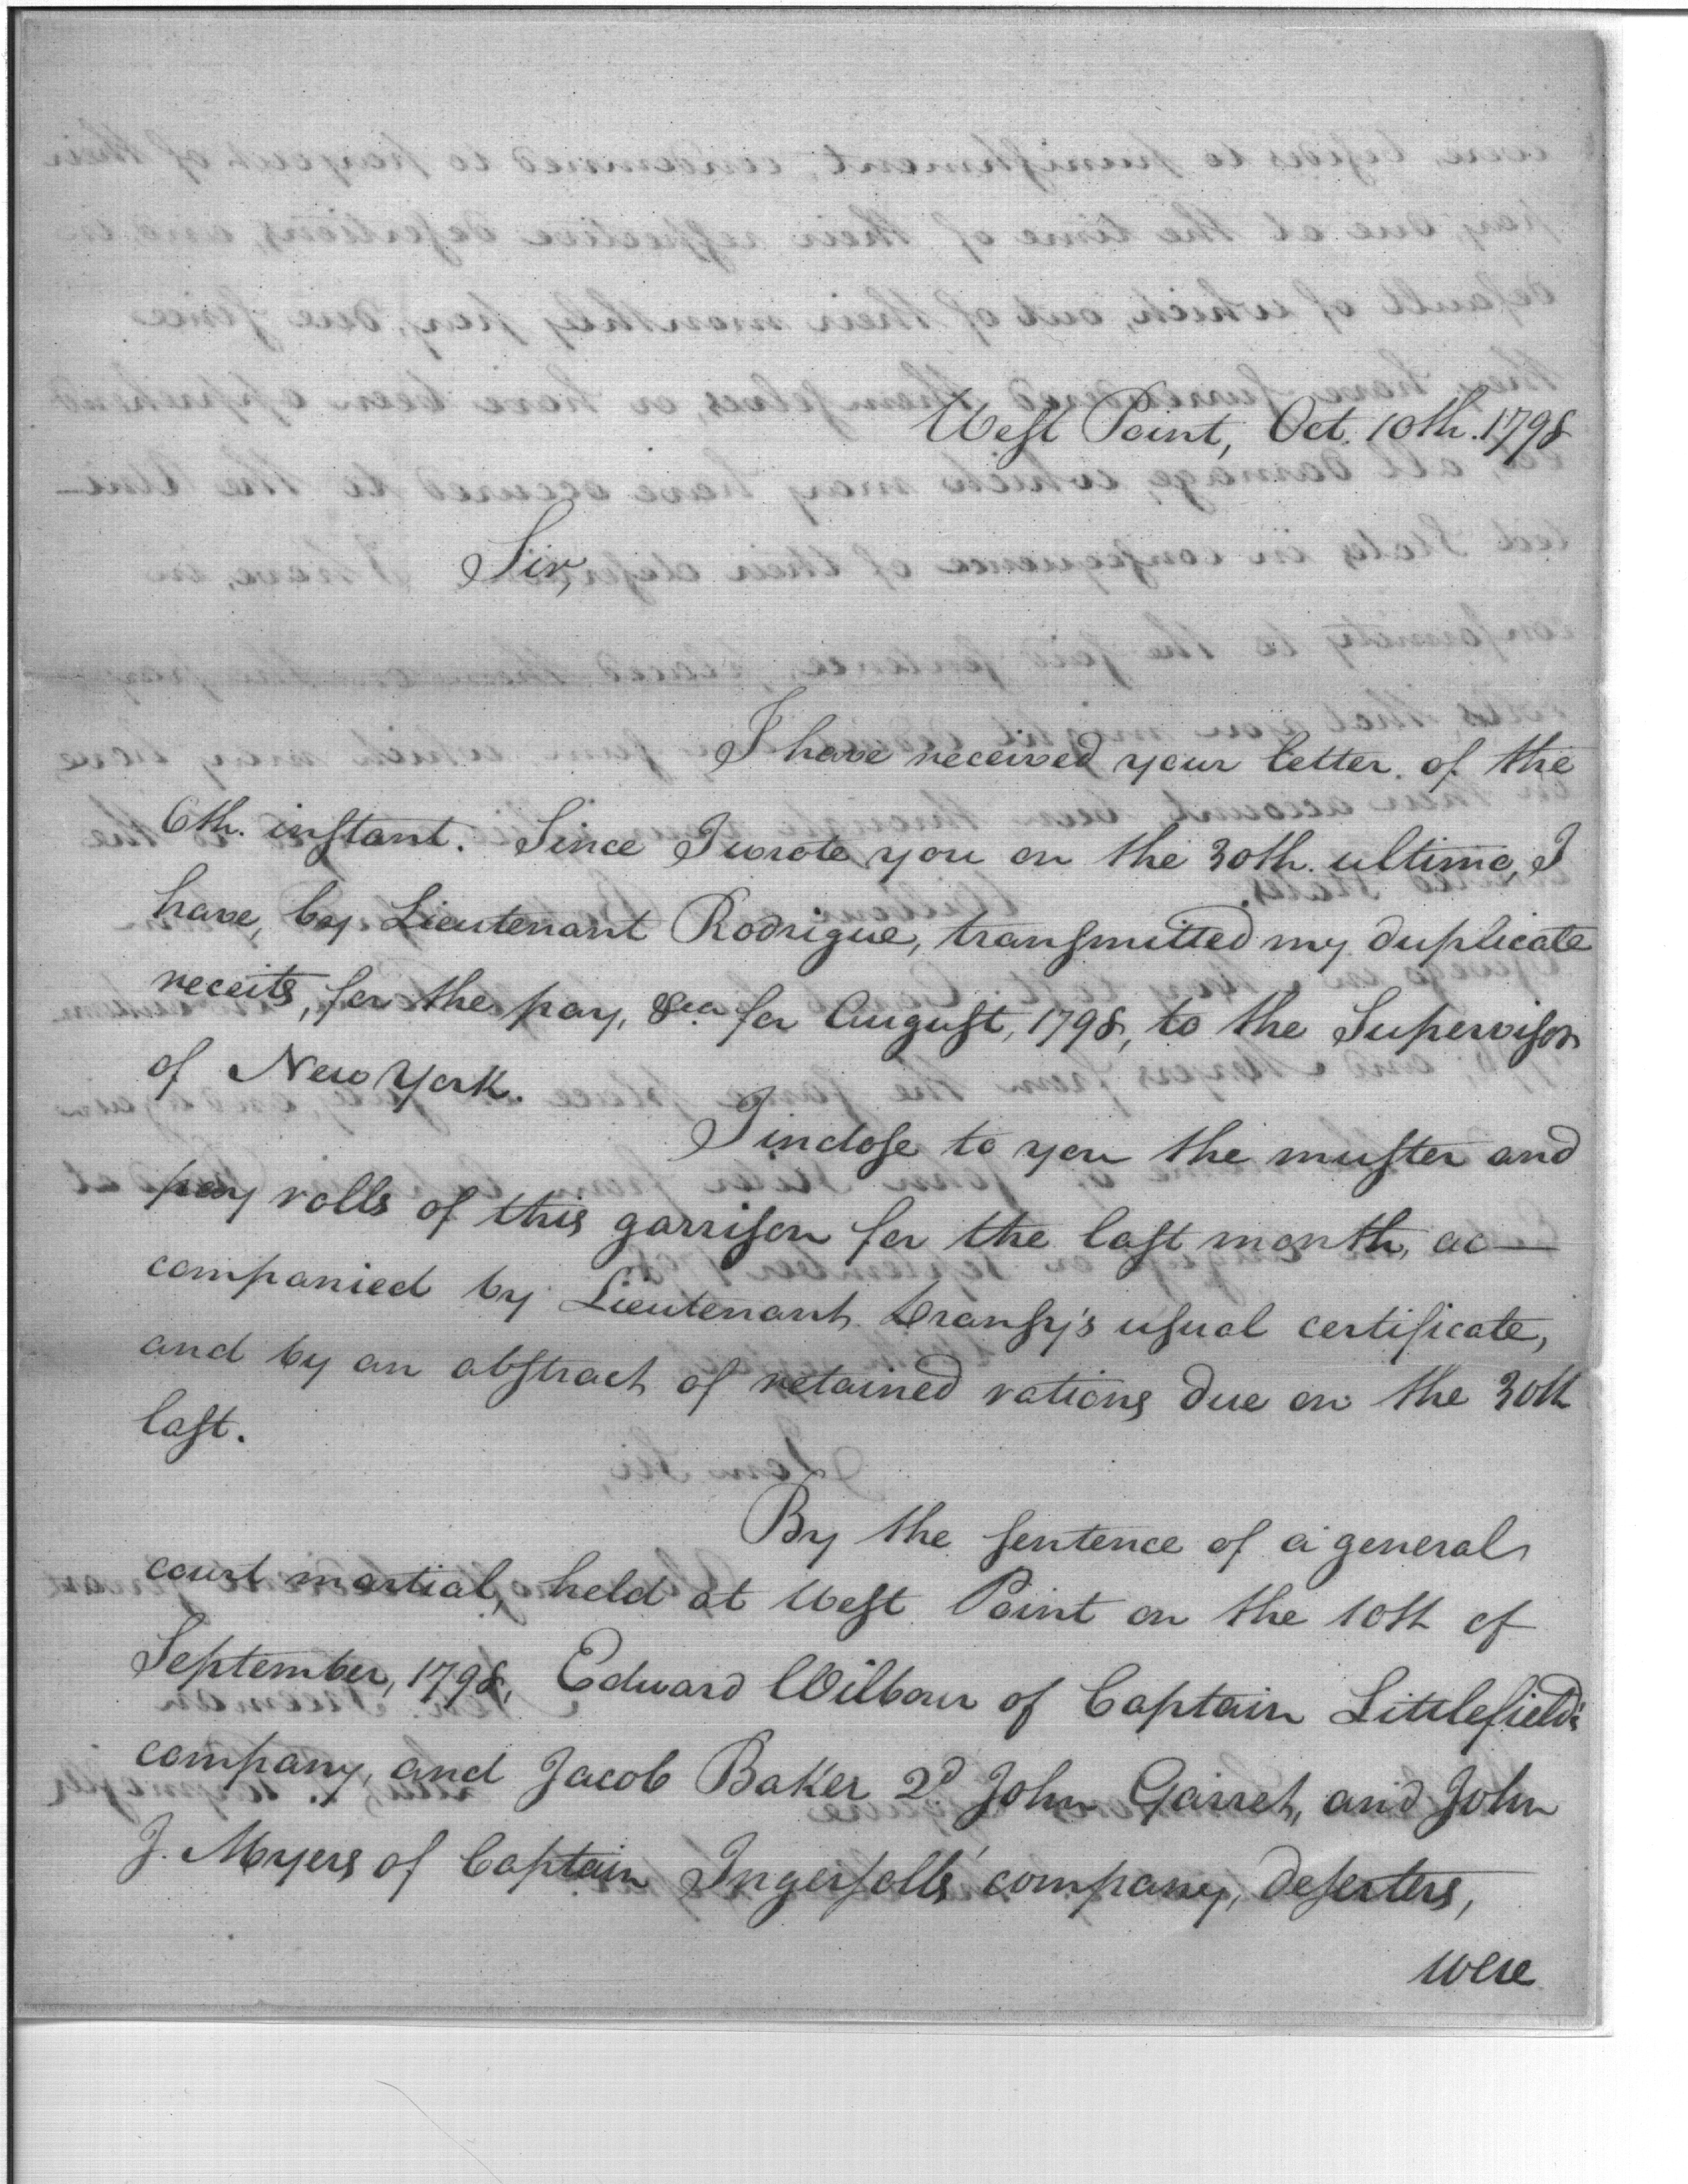 West Point, Oct. 10th. 1798
Sir,
I have received your letter of the
6th. instant. Since I wrote you on the 30th. ultimo, I
have, by Lieutenant Rodrigue, transmitted my duplicate
receits, for the pay, &ca for August, 1798, to the Supervisor
of New York.
I inclose to you the muster and
pay rolls of this garrison for the last month, ac—
companied by Lieutenant usual certificate,
and by an abstract of retained rations due on the 30th
last.
By the sentence of a general
court martial, held at West Point on the 10th of
September, 1798, Edward Wilbour of Captain Littlefield's
company, and Jacob Baker 2d. John Garret, and John
J. Myers of Captain Ingersoll's company, deserters,
were